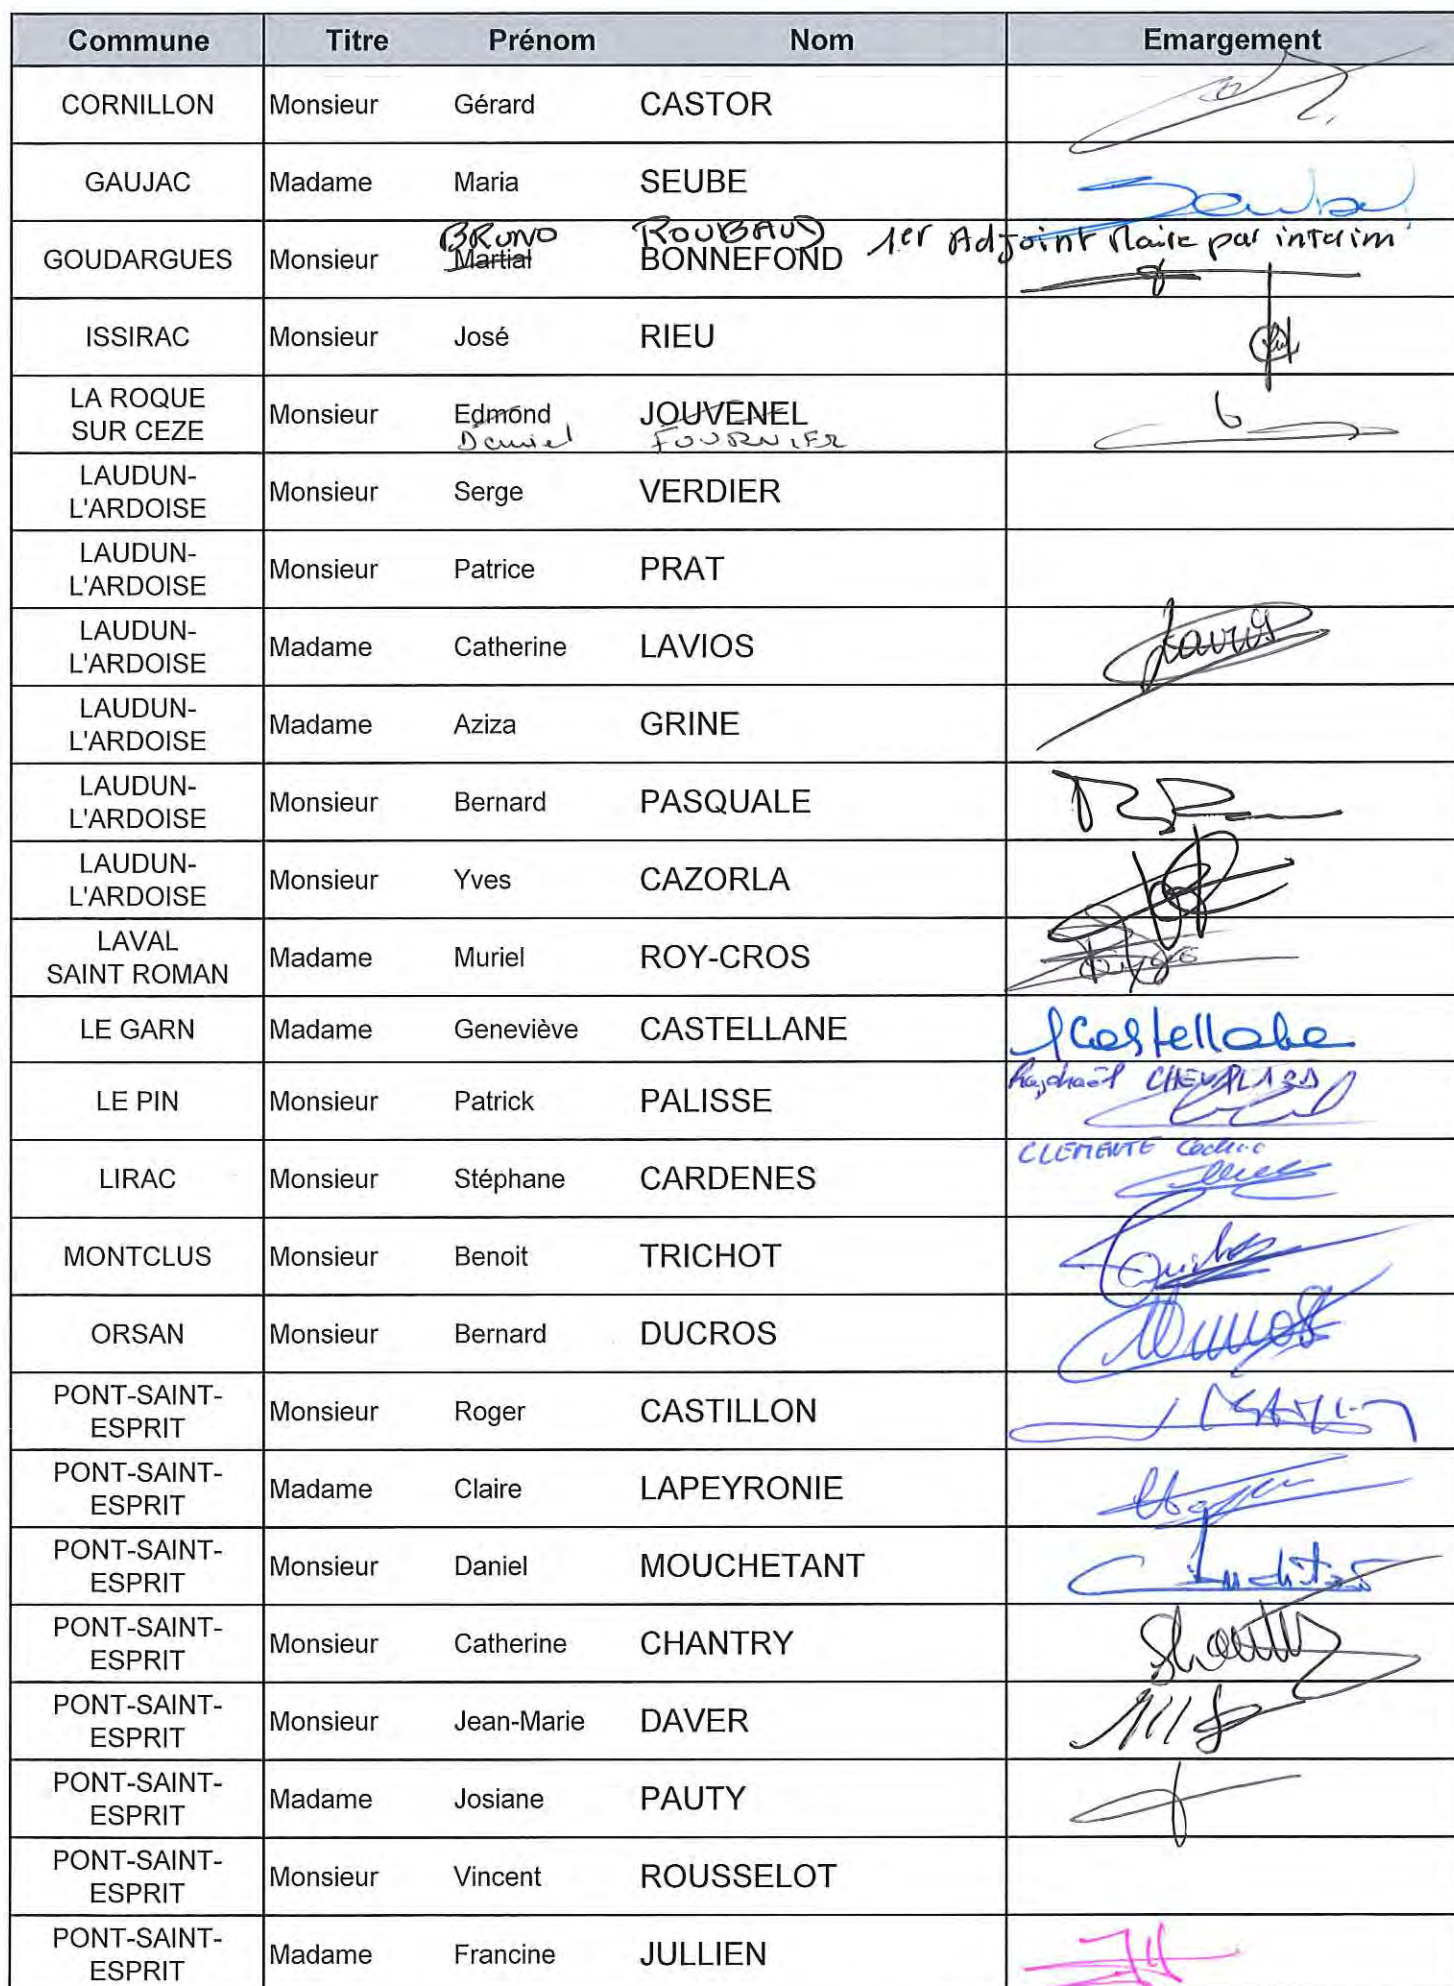 Commune Titre Prénom Nom Emargement
CORNILLON Monsieur Gérard CASTOR
GAUJAC Madame Maria SEUBE
BRUNO ROUBAUD 1er Adjoint Maire par interim
GOUDARGUES Monsieur Martial BONNEFOND
ISSIRAC Monsieur José RIEU
LA ROQUE
SUR CEZE Monsieur Edmond JOUVENEL
Daniel FOURNIER
LAUDUN-
L'ARDOISE Monsieur Serge VERDIER
LAUDUN-
L'ARDOISE Monsieur Patrice PRAT
LAUDUN-
L'ARDOISE Madame Catherine LAVIOS
LAUDUN-
L'ARDOISE Madame Aziza GRINE
LAUDUN-
L'ARDOISE Monsieur Bernard PASQUALE
LAUDUN-
L'ARDOISE Monsieur Yves CAZORLA
LAVAL
SAINT ROMAN Madame Muriel ROY-CROS
LE GARN Madame Geneviève CASTELLANE
Raphaël
LE PIN Monsieur Patrick PALISSE
CLEMENTE
LIRAC Monsieur Stéphane CARDENES
MONTCLUS Monsieur Benoit TRICHOT
ORSAN Monsieur Bernard DUCROS
PONT-SAINT-
ESPRIT Monsieur Roger CASTILLON
PONT-SAINT-
ESPRIT Madame Claire LAPEYRONIE
PONT-SAINT-
ESPRIT Monsieur Daniel MOUCHETANT
PONT-SAINT-
ESPRIT Monsieur Catherine CHANTRY
PONT-SAINT-
ESPRIT Monsieur Jean-Marie DAVER
PONT-SAINT-
ESPRIT Madame Josiane PAUTY
PONT-SAINT-
ESPRIT Monsieur Vincent ROUSSELOT
PONT-SAINT-
ESPRIT Madame Francine JULLIEN